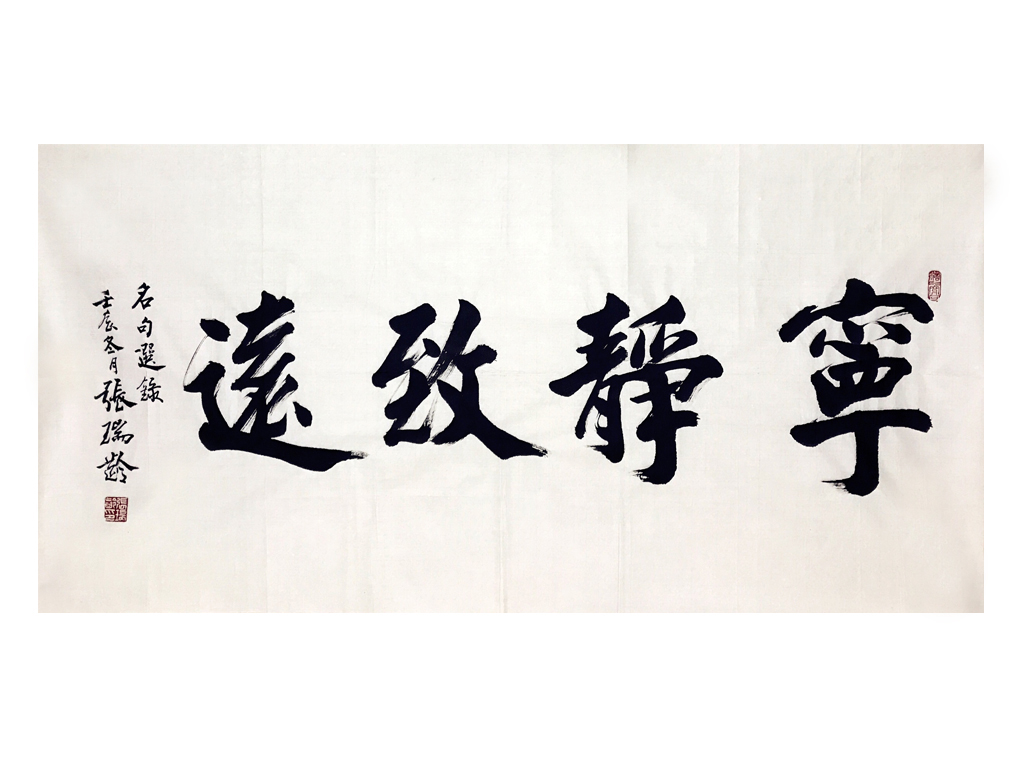 寧靜致遠
名句選錄
壬辰冬月張瑞齡